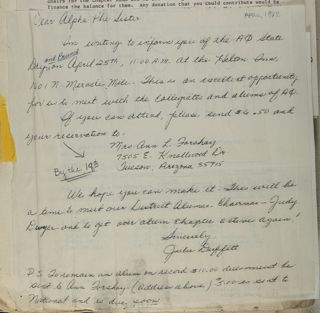 chairs for the chapter
finance the balance for them. Any donation that you could contribute would be
Dear Alpha Phi Sister
April, 1982
I'm writing to inform you of the AΦ State
and Brunch
Day on April 25th, 11:00 A.M. at the Hilton Inn,
No. 1 N. Miracle Mile. This is an excellent opportunity
for us to meet with the Collegiate and alums of AΦ.
If you can attend, please send $6.50 and
your reservation to.
Mrs. Ann L. Forshay
7505 E. Knollwood Dr
Tucson, Arizona 85715
By the 19th
We hope you can make it. This will be
a time to meet our District Alumnae Chairman - Judy
and to get our alum Chapter active again!
Sincerely,
Julie
P.S. To remain an alum on record $10.00 dues must be
sent to Ann Forshay. (address above) 5.00 is sent to
National and is due soon